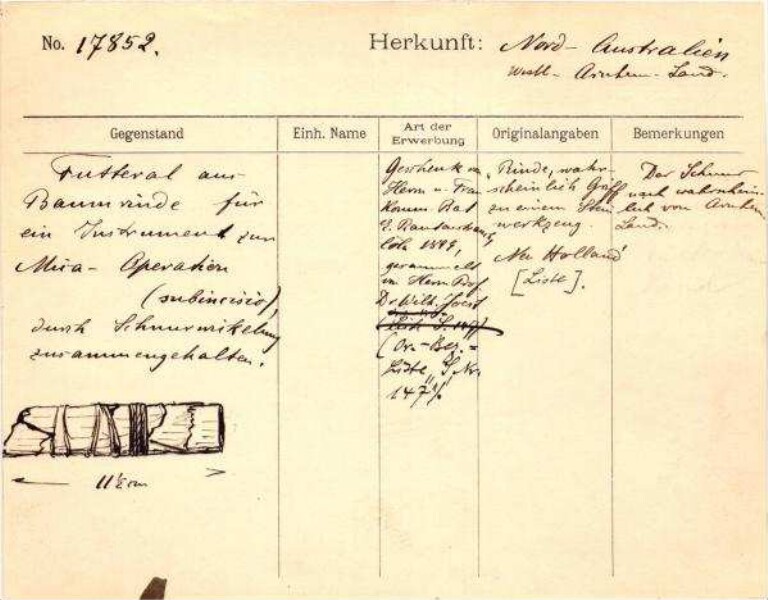 No. 17852.
Herkunft: Nord- Australien
Westl- Arnhem- Land.
Gegenstand
Einh. Name
Art der Erwerbung
Originalangaben
Bemerkungen
Futteral aus
Baumrinde für
ein Instrument zur
Mica- Operation
(subincisio),
durch Schnurwickelung
zusammengehalten.
11½ cm
Geschenk von
Herrn u. Frau
Komm. Rat
E. Rautenstrauch,
Cöln 1899,
gesammelt
von Herrn Prof.
Dr. Wilh. Joest
(Or.-Bez.=
Liste, S. Nr.
147
"Rinde, wahr-
scheinlich Griff
zu einem Stein
werkzeug.
Neu Holland"
[Liste].
Der Schnur
nach wahrschein-
lich von Arnhem
Land.